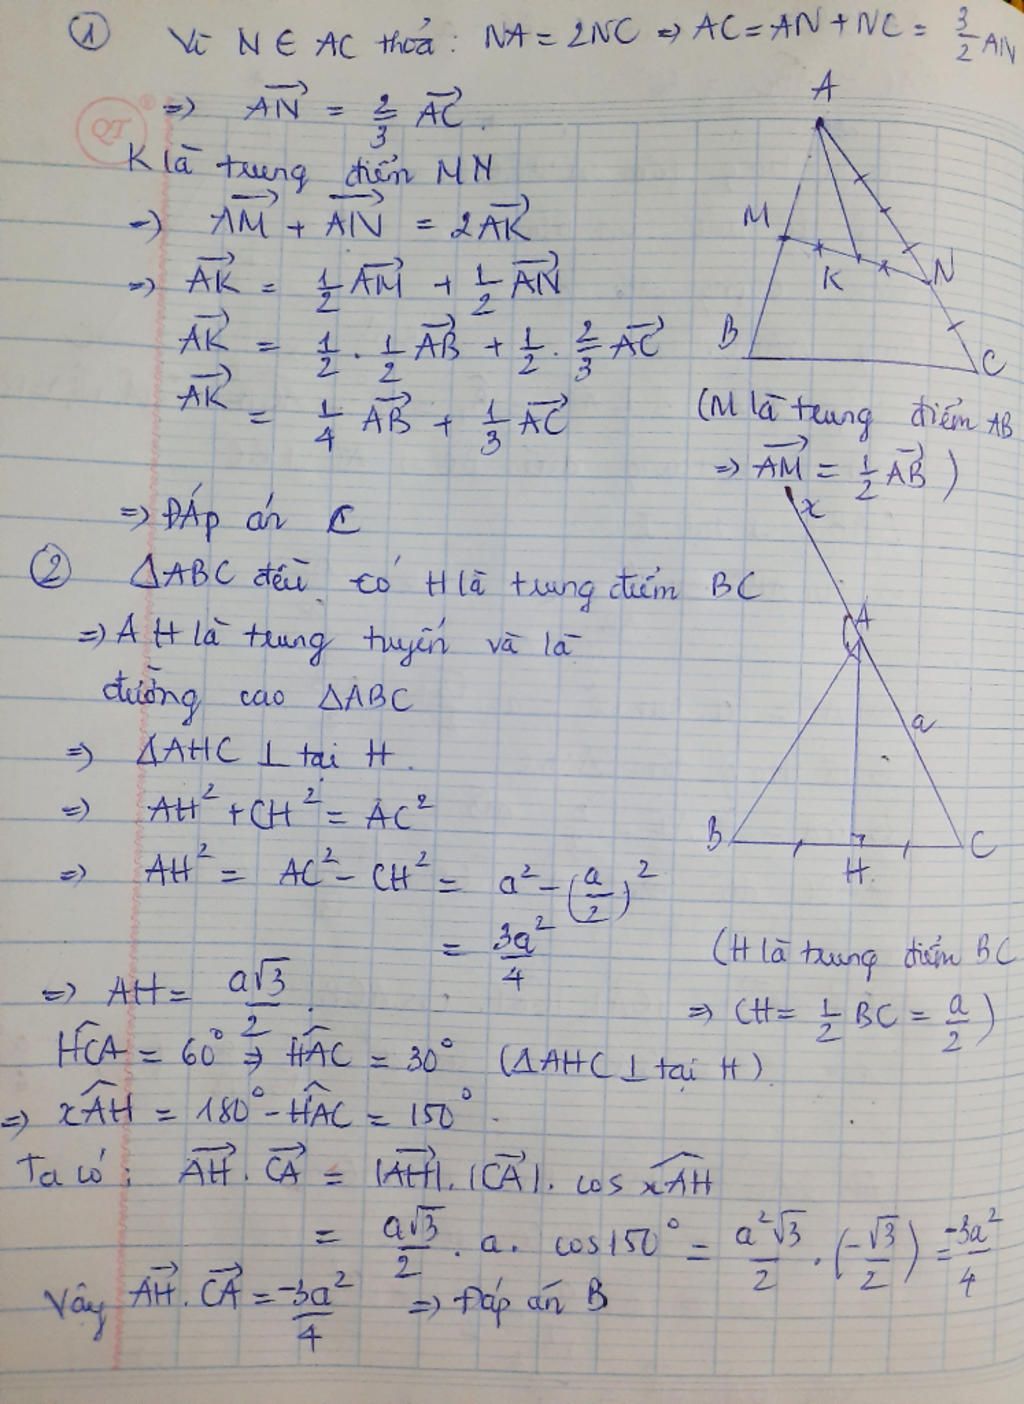 ① Vì N ∈ AC thỏa : NA = 2NC => AC = AN + NC = 3/2 AN
QT ®
=> \overrightarrow{AN} = 2/3 \overrightarrow{AC}.
K là trung điểm MN
=> \overrightarrow{AM} + \overrightarrow{AN} = 2\overrightarrow{AK}
=> \overrightarrow{AK} = 1/2 \overrightarrow{AM} + 1/2 \overrightarrow{AN}
\overrightarrow{AK} = 1/2 . 1/2 \overrightarrow{AB} + 1/2 . 2/3 \overrightarrow{AC}
\overrightarrow{AK} = 1/4 \overrightarrow{AB} + 1/3 \overrightarrow{AC}
A
M
K
N
B
C
(M là trung điểm AB
=> \overrightarrow{AM} = 1/2 \overrightarrow{AB} )
=> Đáp án C
② ΔABC đều có H là trung điểm BC
=> AH là trung tuyến và là
đường cao ΔABC
=> ΔAHC ⊥ tại H.
=> AH² + CH² = AC²
=> AH² = AC² - CH² = a² - (a/2)²
= 3a²/4
x
A
a
B
H
C
(H là trung điểm BC
=> CH = 1/2 BC = a/2 )
=> AH = a√3/2.
\widehat{HCA} = 60° => \widehat{HAC} = 30° (ΔAHC ⊥ tại H)
=> \widehat{xAH} = 180° - \widehat{HAC} = 150°.
Ta có : \overrightarrow{AH} . \overrightarrow{CA} = |\overrightarrow{AH}| . |\overrightarrow{CA}| . cos \widehat{xAH}
= a√3/2 . a . cos150° = a²√3/2 . (-√3/2) = -3a²/4
Vậy \overrightarrow{AH} . \overrightarrow{CA} = -3a²/4 => Đáp án B